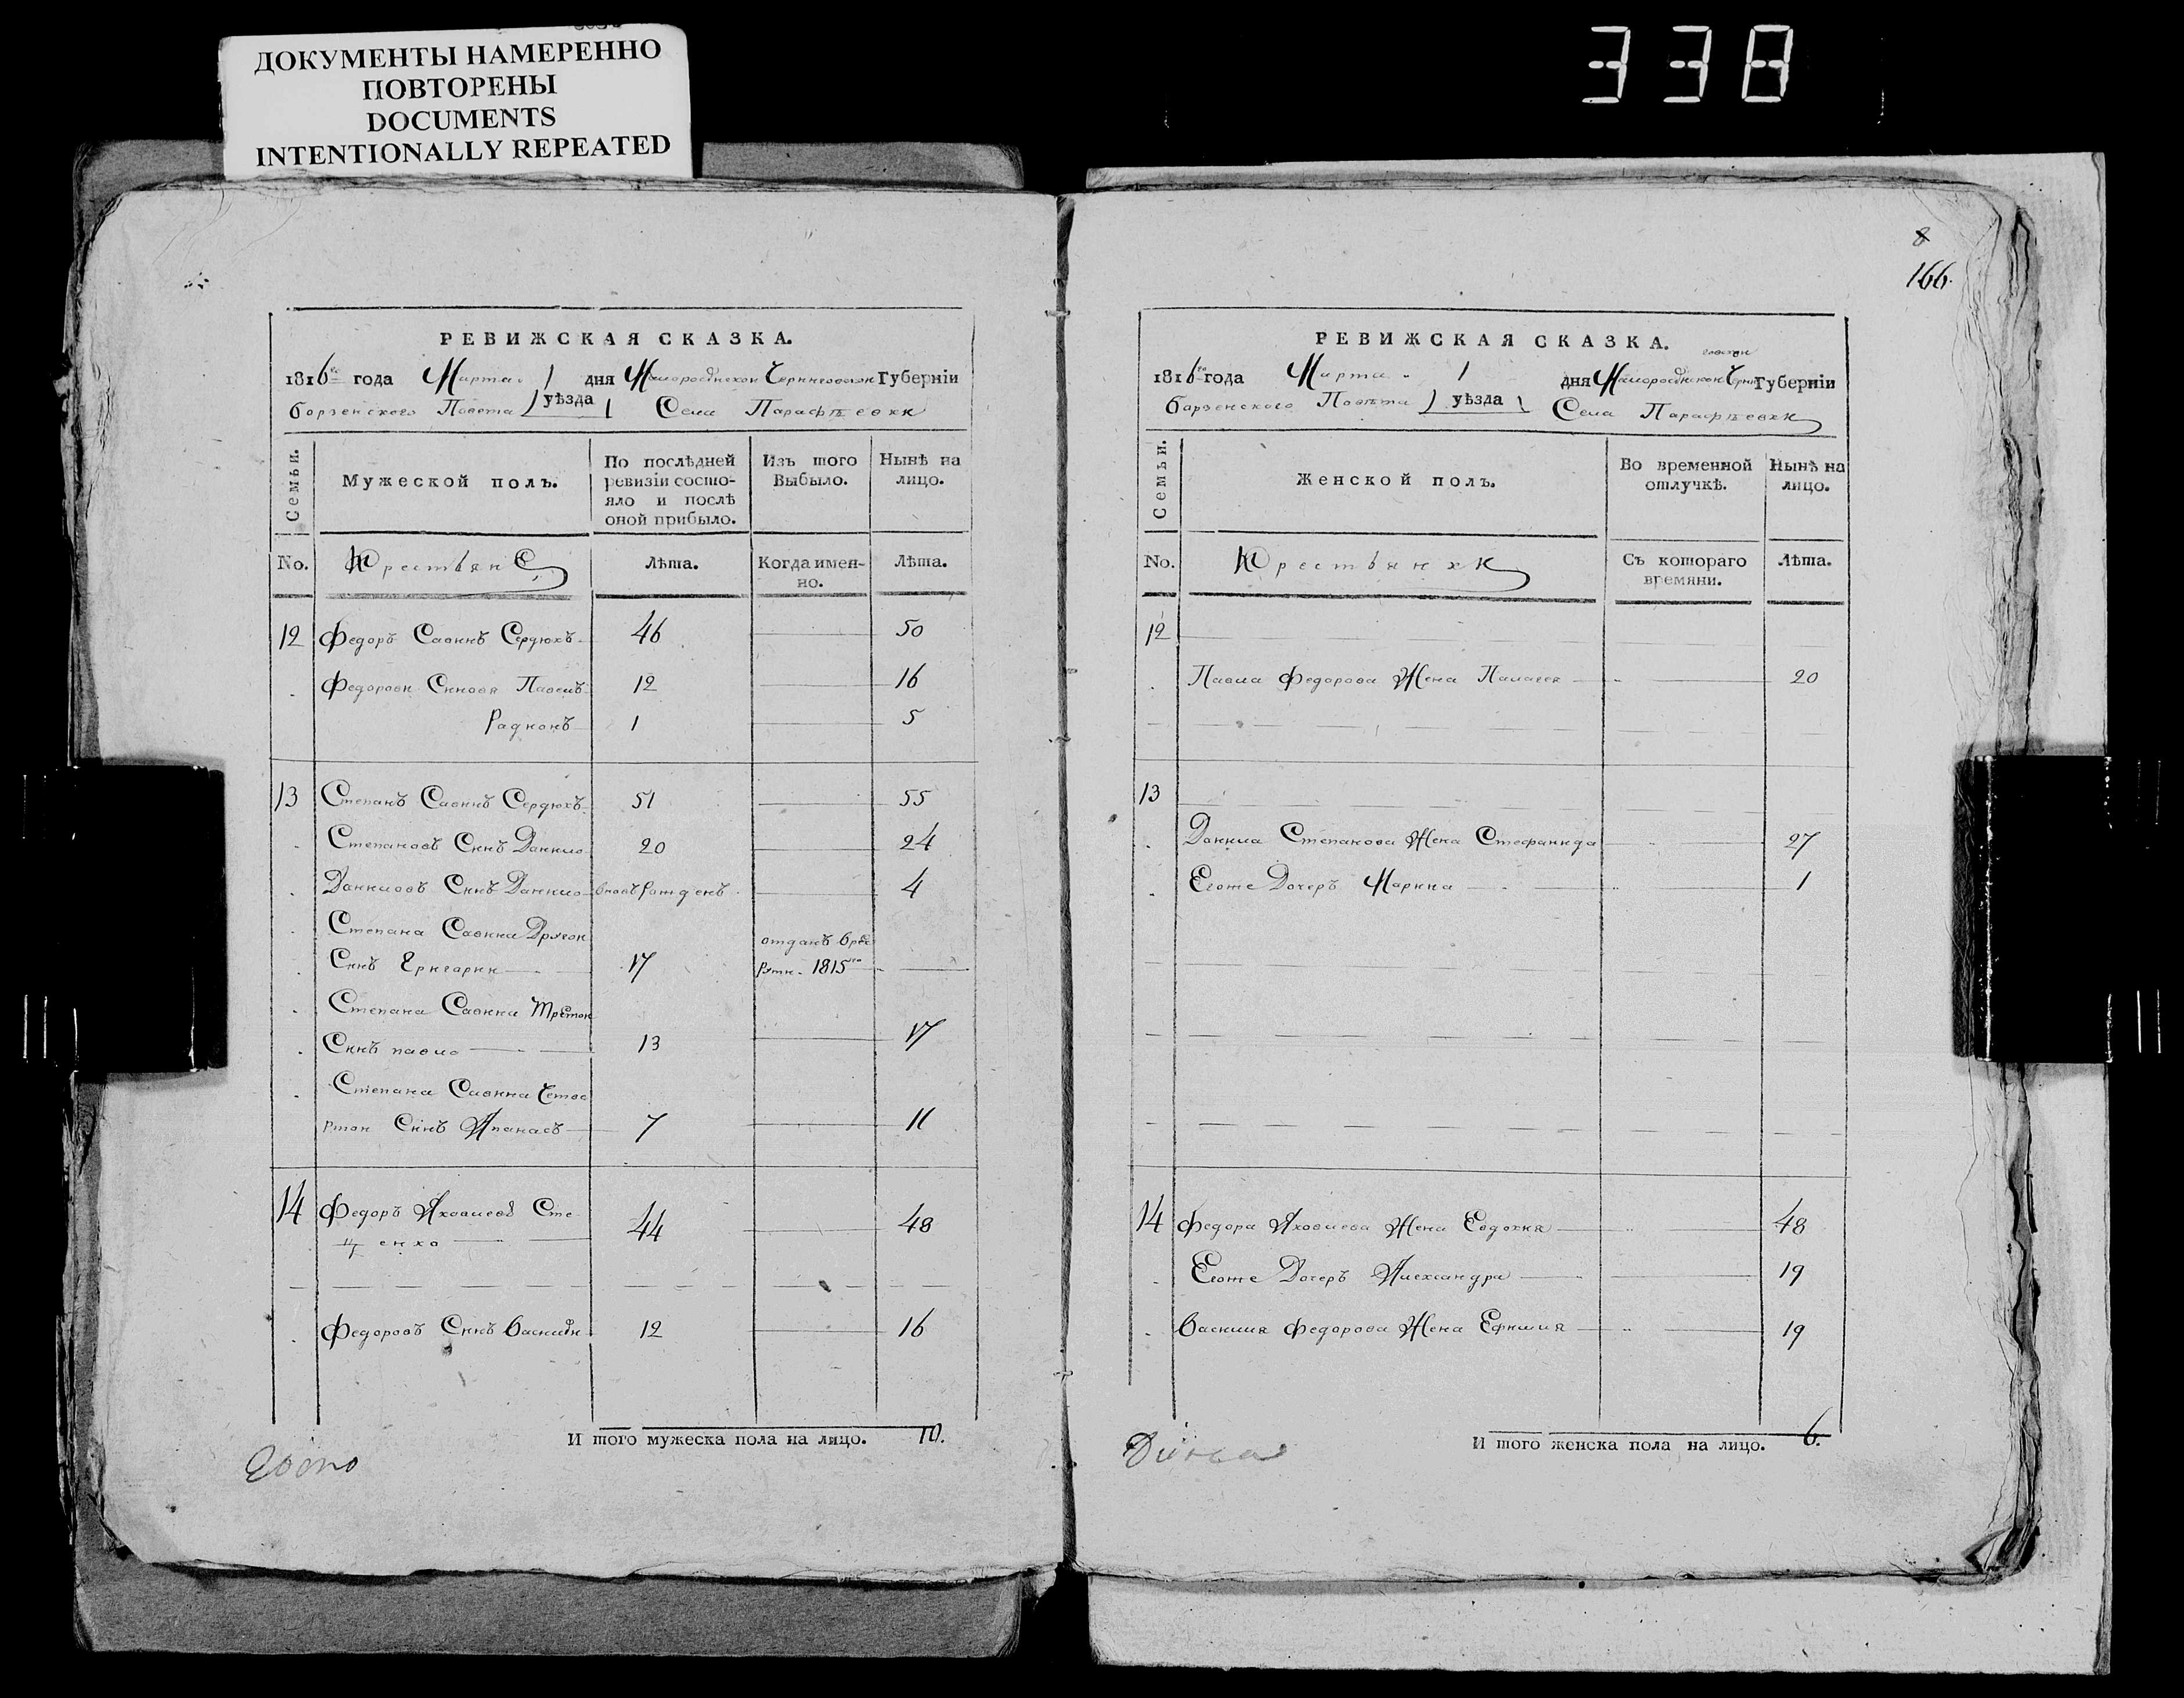 ДОКУМЕНТЫ НАМЕРЕННО
ПОВТОРЕНЫ
DOCUMENTS
INTENTIONALLY REPEATED
338
РЕВИЖСКАЯ СКАЗКА.
1816го года Марта 1 дня Малороссійской Черниговской Губерніи
Борзенского Повѣта уѣзда Села Парафѣевки
Семьи.
Мужеской полъ.
По послѣдней ревизіи состо-
яло и послѣ
оной прибыло.
Изъ того
Выбыло.
Нынѣ на
лицо.
No. Крестьяне Лѣта. Когда имен-
но. Лѣта.
12 Федоръ Савинъ Сердюкъ 46 50
Федорови Синовя Павелъ 12 16
Радионъ 1 5
13 Степанъ Савинъ Сердюкъ 51 55
Степановъ Синъ Данило 20 24
Даниловъ Синъ Данило вновь рожденъ 4
Степана Савина Другои
Синъ Григории 17 отданъ врек
рути 1815го
Степана Савина Третои
Синъ павло 13 17
Степана Савина Четве
ртои Синъ Апанасъ 7 11
14 Федоръ Яковлевъ Сте
ценко 44 48
Федоровъ Синъ Василии 12 16
И того мужеска пола на лицо. 10.
8
166.
РЕВИЖСКАЯ СКАЗКА.
1816го года Марта 1 дня Малороссійской Черниговской Губерніи
Борзенского Повѣта уѣзда Села Парафѣевки
Семьи.
Женской полъ.
Во временной
отлучкѣ.
Нынѣ на
лицо.
No. Крестьянки Съ котораго
времяни. Лѣта.
12
Павла Федорова Жена Палагея 20
13
Данила Степанова Жена Стефанида 27
Егоже Дочеръ Марина 1
14 Федора Яковлева Жена Евдокия 48
Егоже Дочеръ Александра 19
Василия Федорова Жена Ефимия 19
И того женска пола на лицо. 6.